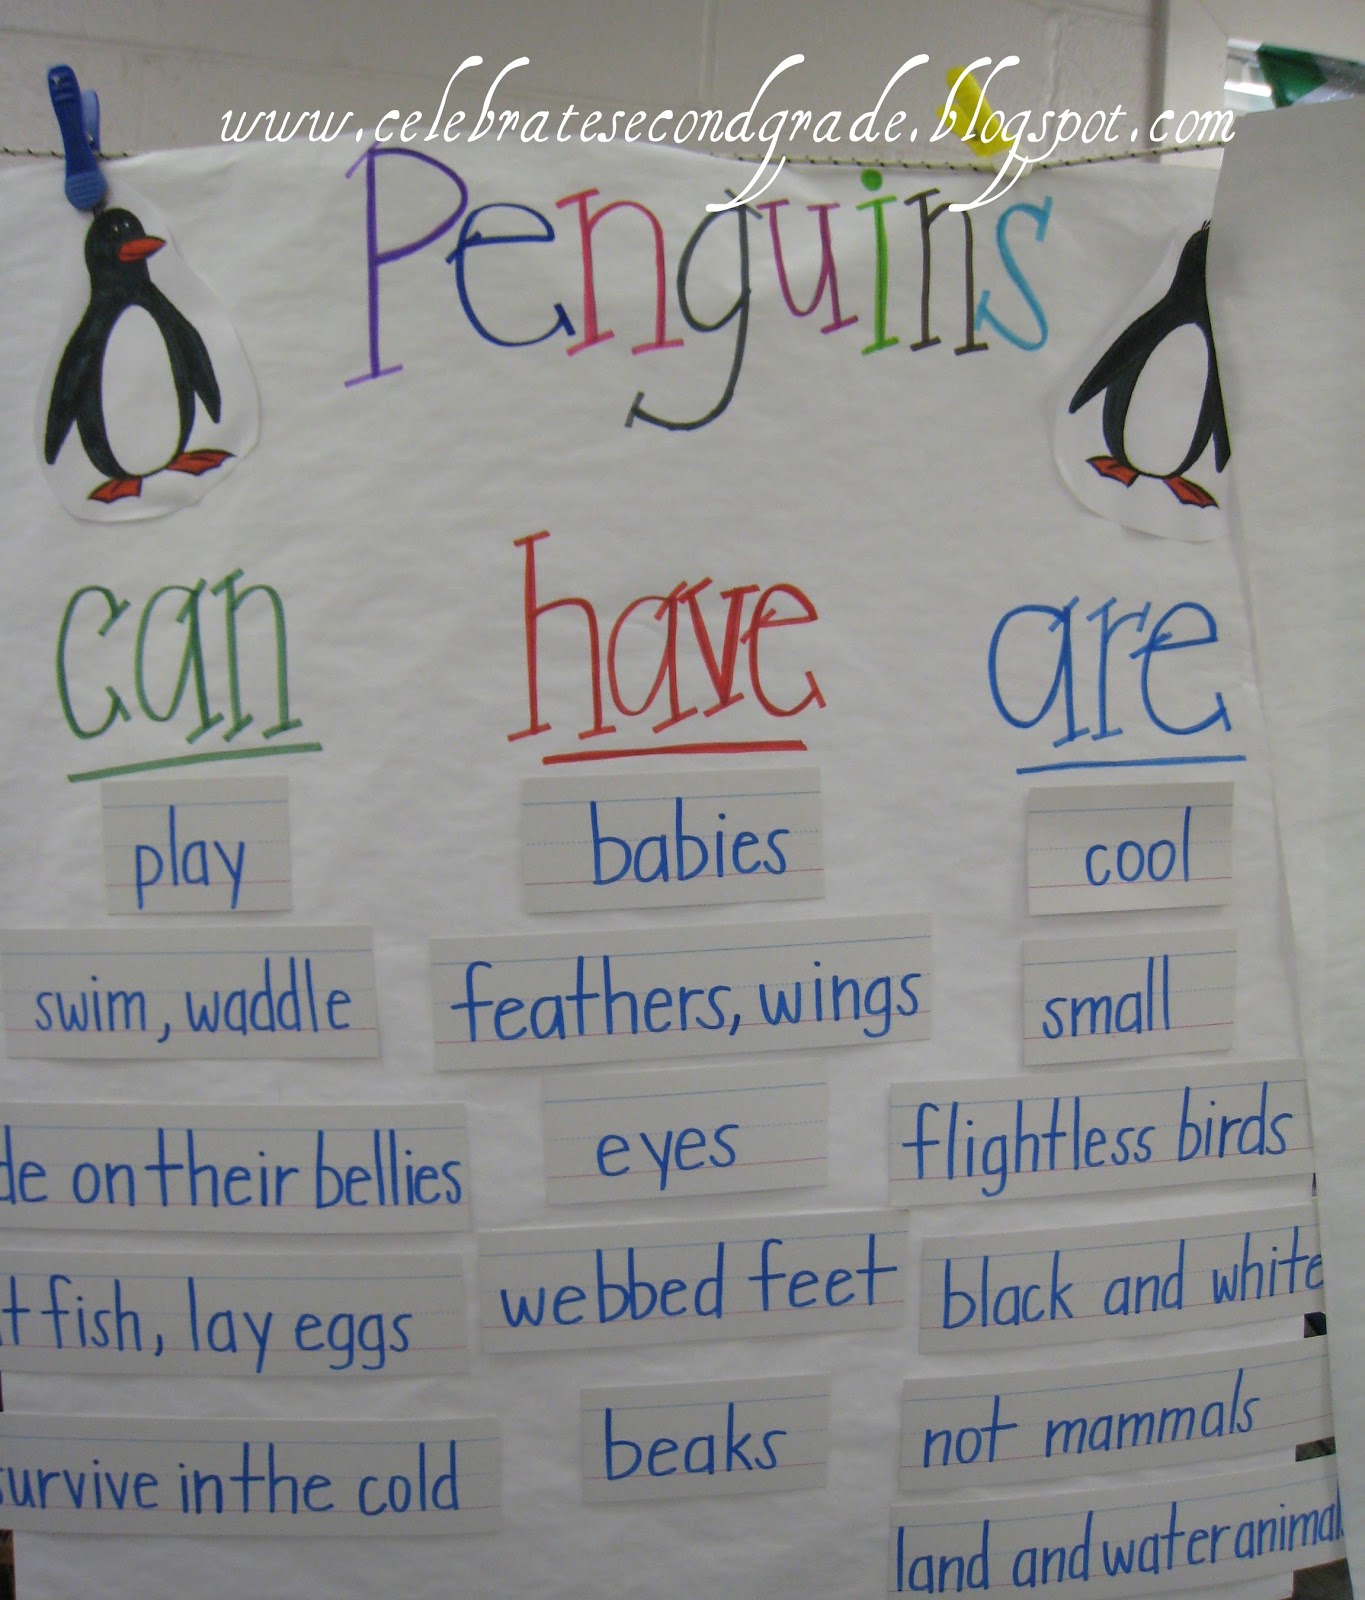 www.celebratesecondgrade.blogspot.com
Penguins
can
play
swim, waddle
de on their bellies
t fish, lay eggs
survive in the cold
have
babies
feathers, wings
eyes
webbed feet
beaks
are
cool
small
flightless birds
black and white
not mammals
land and water animal